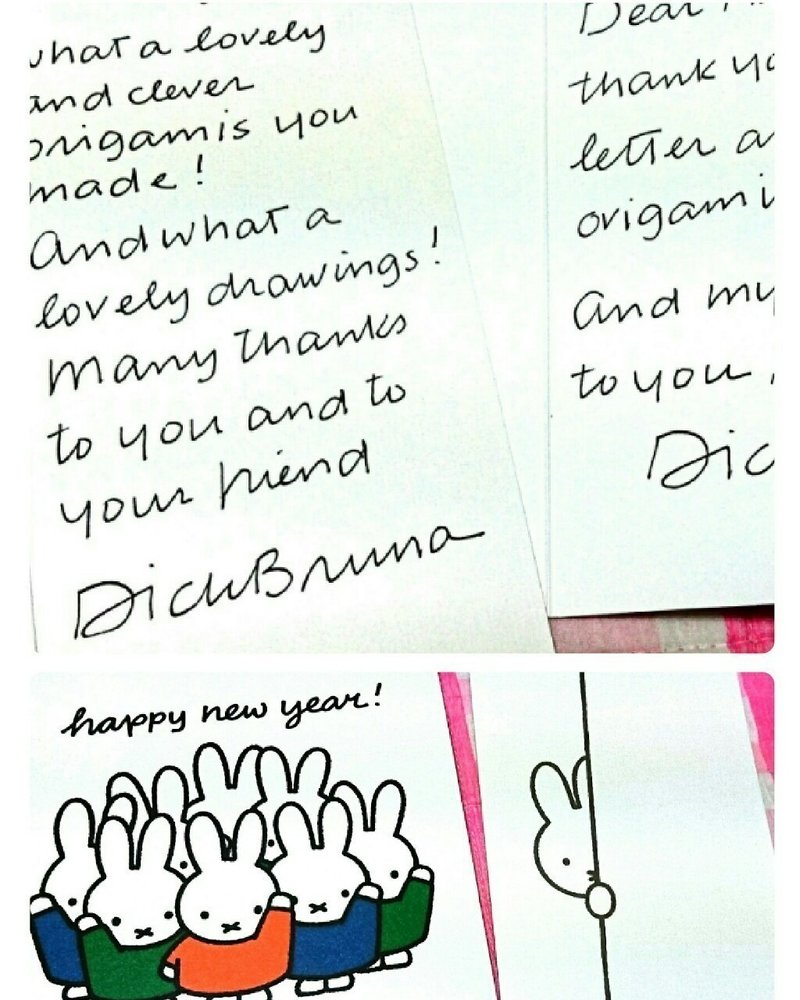 what a lovely
and clever
origamis you
made!
And what a
lovely drawings!
Many thanks
to you and to
your friend
Dick Bruna
Dear
thank
letter
origami
and my
to you
Dic
happy new year!